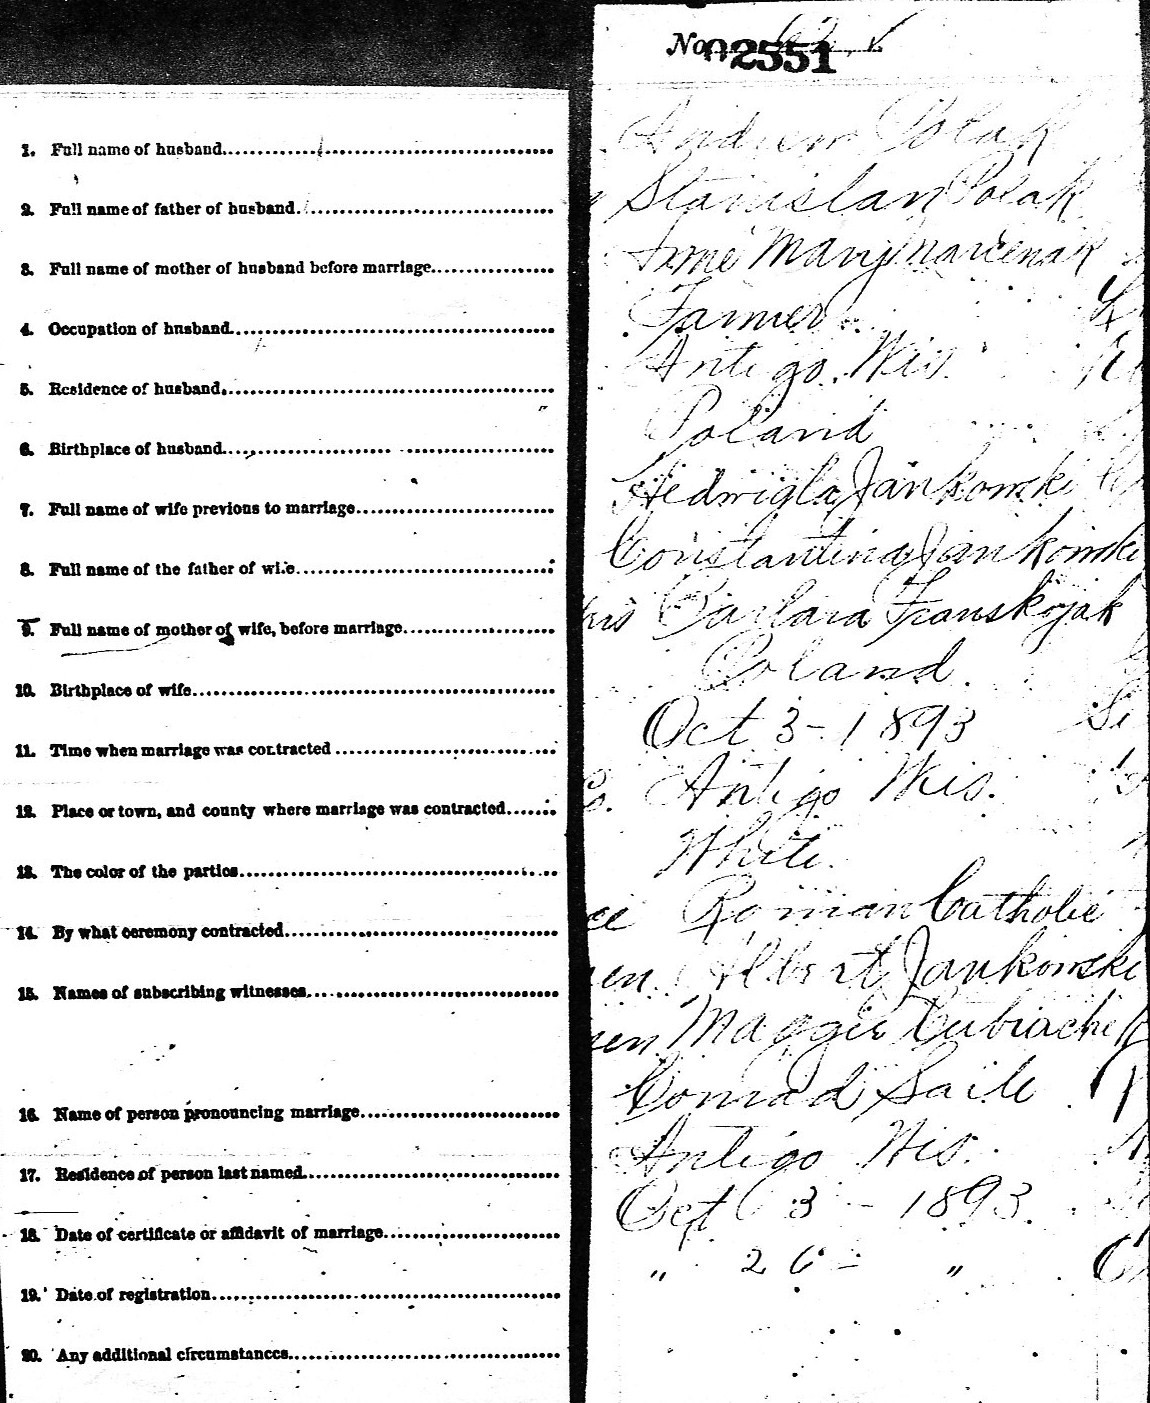 No. 02551
1. Full name of husband
Andrew Polak
2. Full name of father of husband
Stanislan Polak
3. Full name of mother of husband before marriage
Mary
4. Occupation of husband
Farmer
5. Residence of husband
Antigo. Wis.
6. Birthplace of husband
Poland
7. Full name of wife previous to marriage
Hedwigla Jankowski
8. Full name of the father of wife
Constantina Jankowski
9. Full name of mother of wife, before marriage
Barbara Franskojak
10. Birthplace of wife
Poland.
11. Time when marriage was contracted
Oct 3 - 1893
12. Place or town, and county where marriage was contracted
Antigo Wis.
13. The color of the parties
White.
14. By what ceremony contracted
Roman Catholic
15. Names of subscribing witnesses
Albert Jankowski
Maggie
16. Name of person pronouncing marriage
Conrad Saile
17. Residence of person last named
Antigo Wis.
18. Date of certificate or affidavit of marriage
Oct 3 - 1893.
19. Date of registration
" 26 - "
20. Any additional circumstances